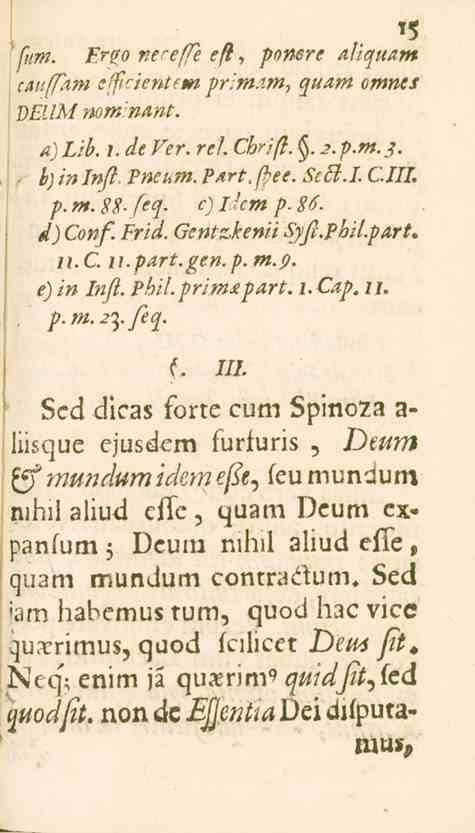 15
ſum. Ergo neceſſe eſt, ponere aliquam
cauſſam efficientem primam, quam omnes
DEUM nominant.
a) Lib. 1. de Ver. rel. Chriſt. §. 2. p. m. 3.
b) in Inſt. Pneum. Part. ſpee. Sect. I. C. III.
p. m. 88. ſeq. c) Idem p. 86.
d) Conf. Frid. Gentzkenii Syſt. Phil. part.
11. C. 11. part. gen. p. m. 9.
e) in Inſt. Phil. primæ part. 1. Cap. 11.
p. m. 23. ſeq.
§. III.
Sed dicas forte cum Spinoza a-
liisque ejusdem furfuris, Deum
& mundum idem eße, ſeu mundum
nihil aliud eſſe, quam Deum ex-
panſum; Deum nihil aliud eſſe,
quam mundum contractum. Sed
jam habemus tum, quod hac vice
quærimus, quod ſcilicet Deus ſit.
Neq; enim jã quærimꝰ quid ſit, ſed
quod ſit. non de Eſſentia Dei diſputa-
mus,